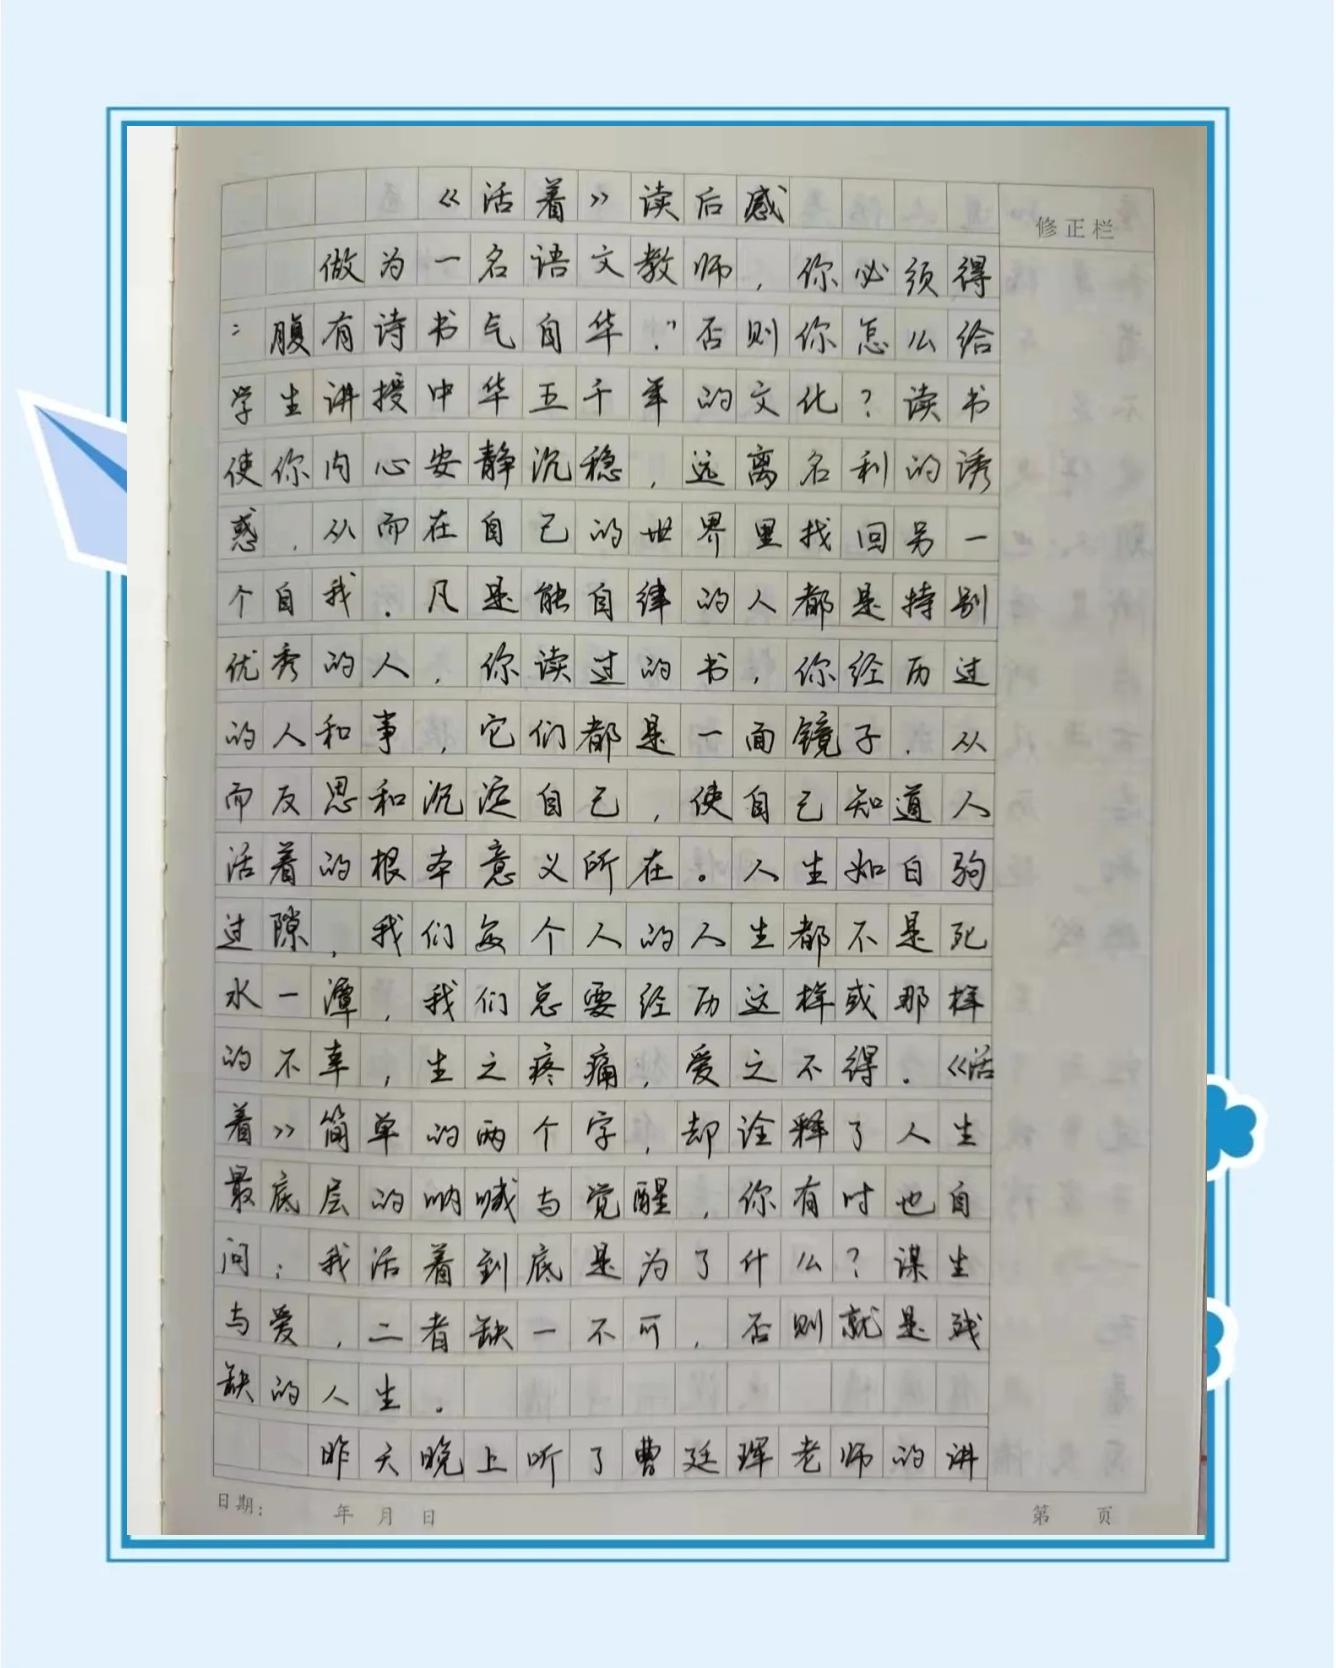 《活着》读后感
修正栏
做为一名语文教师，你必须得
“腹有诗书气自华.”否则你怎么给
学生讲授中华五千年的文化？读书
使你内心安静沉稳，远离名利的诱
惑，从而在自己的世界里找回另一
个自我．凡是能自律的人都是特别
优秀的人，你读过的书，你经历过
的人和事，它们都是一面镜子．从
而反思和沉淀自己，使自己知道人
活着的根本意义所在。人生如白驹
过隙，我们每个人的人生都不是死
水一潭，我们总要经历这样或那样
的不幸，生之疼痛，爱之不得．《活
着》简单的两个字，却诠释了人生
最底层的呐喊与觉醒，你有时也自
问：我活着到底是为了什么？谋生
与爱，二者缺一不可，否则就是残
缺的人生．
昨天晚上听了曹廷珲老师的讲
日期：  年 月 日
第 页